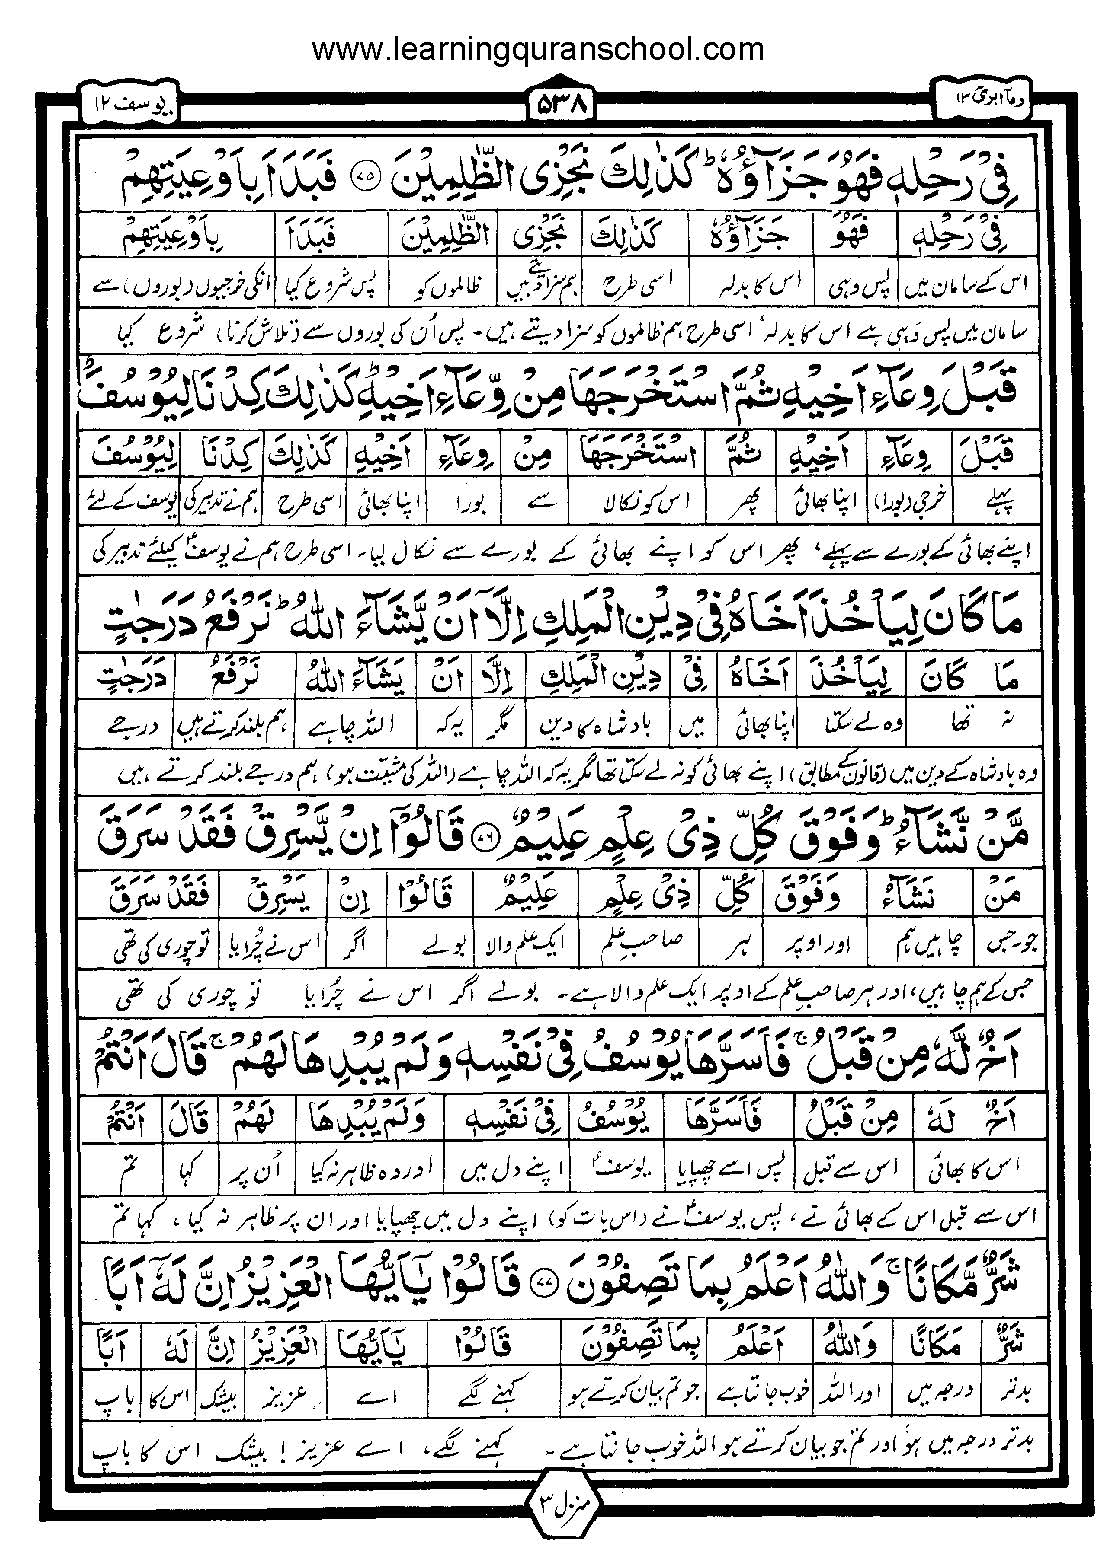 www.learningquranschool.com
یوسف ۱۲
۵۳۸
وما ابرئ ۱۳
فِیْ رَحْلِهٖ فَهُوَ جَزَآؤُهٗ ؕ كَذٰلِكَ نَجْزِی الظّٰلِمِیْنَ ﴿۷۵﴾ فَبَدَاَ بِاَوْعِیَتِهِمْ
فِیْ رَحْلِهٖ فَهُوَ جَزَآؤُهٗ كَذٰلِكَ نَجْزِی الظّٰلِمِیْنَ فَبَدَاَ بِاَوْعِیَتِهِمْ
اس کے سامان میں پس وہی اس کا بدلہ اسی طرح ہم سزا دیتے ہیں ظالموں کو پس شروع کیا انکی خرجیوں (بوروں) سے
سامان میں پس وہی ہے اس کا بدلہ، اسی طرح ہم ظالموں کو سزا دیتے ہیں۔ پس اُن کی بوروں سے (تلاش کرنا) شروع کیا
قَبْلَ وِعَآءِ اَخِیْهِ ثُمَّ اسْتَخْرَجَهَا مِنْ وِّعَآءِ اَخِیْهِ ؕ كَذٰلِكَ كِدْنَا لِیُوْسُفَ ؕ
قَبْلَ وِعَآءِ اَخِیْهِ ثُمَّ اسْتَخْرَجَهَا مِنْ وِعَآءِ اَخِیْهِ كَذٰلِكَ كِدْنَا لِیُوْسُفَ
پہلے خرجی (بورا) اپنا بھائی پھر اس کو نکالا سے بورا اپنا بھائی اسی طرح ہم نے تدبیر کی یوسف کے لئے
اپنے بھائی کے بورے سے پہلے، پھر اس کو اپنے بھائی کے بورے سے نکال لیا۔ اسی طرح ہم نے یوسفؑ کیلئے تدبیر کی
مَا كَانَ لِیَاْخُذَ اَخَاهُ فِیْ دِیْنِ الْمَلِكِ اِلَّاۤ اَنْ یَّشَآءَ اللّٰهُ ؕ نَرْفَعُ دَرَجٰتٍ
مَا كَانَ لِیَاْخُذَ اَخَاهُ فِیْ دِیْنِ الْمَلِكِ اِلَّا اَنْ یَشَآءَ اللّٰهُ نَرْفَعُ دَرَجٰتٍ
نہ تھا وہ لے سکتا اپنا بھائی میں بادشاہ کا دین مگر یہ کہ اللہ چاہے ہم بلند کرتے ہیں درجے
وہ بادشاہ کے دین میں (قانون کے مطابق) اپنے بھائی کو نہ لے سکتا تھا مگر یہ کہ اللہ چاہے (اللہ کی مشیّت ہو) ہم درجے بلند کرتے ہیں
مَّنْ نَّشَآءُ ؕ وَفَوْقَ كُلِّ ذِیْ عِلْمٍ عَلِیْمٌ ﴿۷۶﴾ قَالُوْۤا اِنْ یَّسْرِقْ فَقَدْ سَرَقَ
مَنْ نَشَآءُ وَفَوْقَ كُلِّ ذِیْ عِلْمٍ عَلِیْمٌ قَالُوْۤا اِنْ یَسْرِقْ فَقَدْ سَرَقَ
جو۔جس چاہیں ہم اور اوپر ہر صاحبِ علم ایک علم والا بولے اگر اس نے چُرایا تو چوری کی تھی
جس کے ہم چاہیں، اور ہر صاحبِ علم کے اوپر ایک علم والا ہے۔ بولے اگر اس نے چُرایا تو چوری کی تھی
اَخٌ لَّهٗ مِنْ قَبْلُ ۚ فَاَسَرَّهَا یُوْسُفُ فِیْ نَفْسِهٖ وَلَمْ یُبْدِهَا لَهُمْ ۚ قَالَ اَنْتُمْ
اَخٌ لَهٗ مِنْ قَبْلُ فَاَسَرَّهَا یُوْسُفُ فِیْ نَفْسِهٖ وَلَمْ یُبْدِهَا لَهُمْ قَالَ اَنْتُمْ
اس کا بھائی اس سے قبل پس اسے چھپایا یوسفؑ اپنے دل میں اور وہ ظاہر نہ کیا اُن پر کہا تم
اس سے قبل اس کے بھائی نے، پس یوسفؑ نے (اس بات کو) اپنے دل میں چھپایا اور ان پر ظاہر نہ کیا، کہا تم
شَرٌّ مَّكَانًا ۚ وَاللّٰهُ اَعْلَمُ بِمَا تَصِفُوْنَ ﴿۷۷﴾ قَالُوْا یٰۤاَیُّهَا الْعَزِیْزُ اِنَّ لَهٗۤ اَبًا
شَرٌّ مَكَانًا وَاللّٰهُ اَعْلَمُ بِمَا تَصِفُوْنَ قَالُوْا یٰۤاَیُّهَا الْعَزِیْزُ اِنَّ لَهٗ اَبًا
بدتر درجہ میں اور اللہ خوب جانتا ہے جو تم بیان کرتے ہو کہنے لگے اے عزیز بیشک اس کا باپ
بدتر درجہ میں ہو اور تم جو بیان کرتے ہو اللہ خوب جانتا ہے۔ کہنے لگے، اے عزیز! بیشک اس کا باپ
منزل ۳